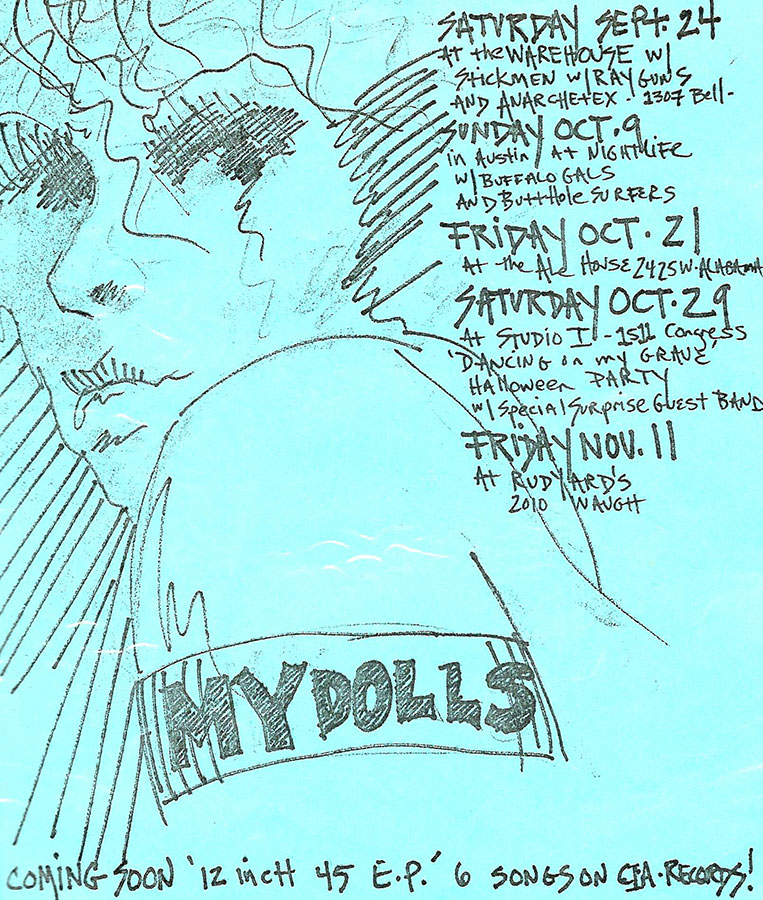 SATURDAY SEPT. 24
At the WAREHOUSE W/
Stickmen w/RAY GUNS
AND ANARCHETEX - 1307 Bell -
SUNDAY OCT. 9
in Austin / At NIGHTLIFE
W/BUFFALO GALS
AND ButtHole SURFERS
FRIDAY OCT. 21
At the Ale House 2425 W. ALABAMA
SATURDAY OCT. 29
At STUDIO I - 1511 Congress
'DANCING on my GRAVE'
HAlloween PARTY
w/ Special Surprise Guest BAND
FRIDAY NOV. 11
At RUDYARD'S
2010 WAUGH
MYDOLLS
COMING SOON '12 incH 45 E.P.' 6 SONGS ON CIA. RECORDS!